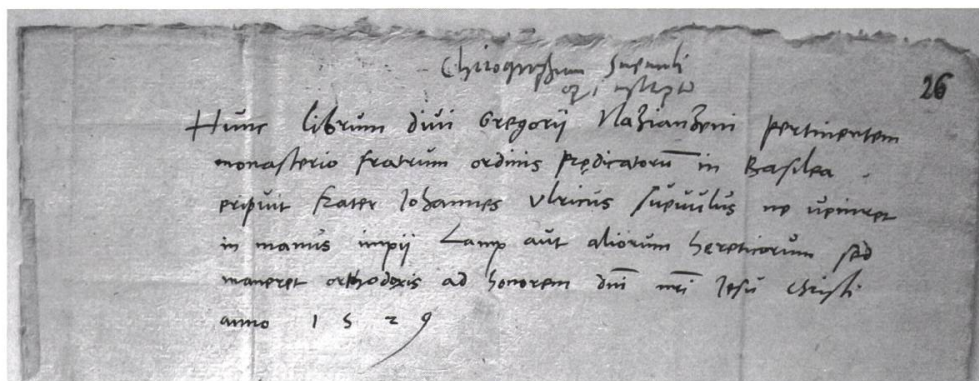 Chirographum Sueuuli
26
Hunc librum diui Gregorij Nazianzeni pertinentem
monasterio fratrum ordinis prędicatoru̅ in Basilea
eripuit frater Iohannes vlricus sueuulus ne ueniret
in manus impij Lamp aut aliorum hereticorum sed
maneret orthodoxis ad honorem dn̅i nr̅i Iesu christi
anno 1529